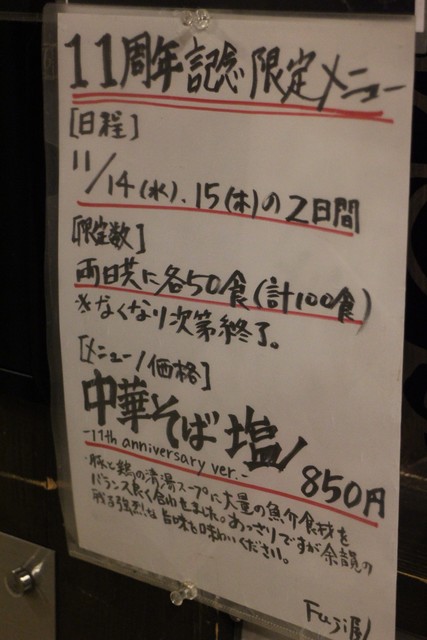 11周年記念限定メニュー
[日程]
11/14(水)、15(木)の2日間
[限定数]
両日共に各50食(計100食)
※なくなり次第終了。
[メニュー/価格]
中華そば塩/
-11th anniversary ver.-
850円
・豚と鶏の清湯スープに大量の魚介食材を
バランス良く合わせました。あっさりですが余韻の
残る強烈な旨味を味わいください。
Fuji屋